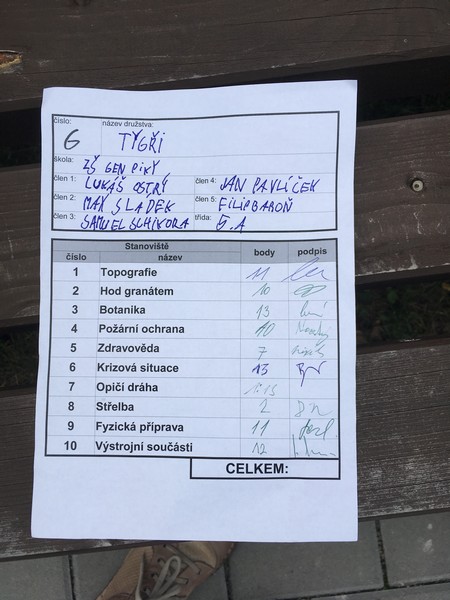 číslo: název družstva:
6 TYGŘI
škola: ZŠ GEN PIKY
člen 1: LUKÁŠ OSTRÝ člen 4: JAN PAVLÍČEK
člen 2: MAX SLADEK člen 5: FILIP BAROŇ
člen 3: SAMUEL SCHIKORA třída: 5.A
Stanoviště body podpis
číslo název
1 Topografie 11
2 Hod granátem 10
3 Botanika 13
4 Požární ochrana 10
5 Zdravověda 7
6 Krizová situace 13
7 Opičí dráha
8 Střelba 2
9 Fyzická příprava 11
10 Výstrojní součásti 12
CELKEM: